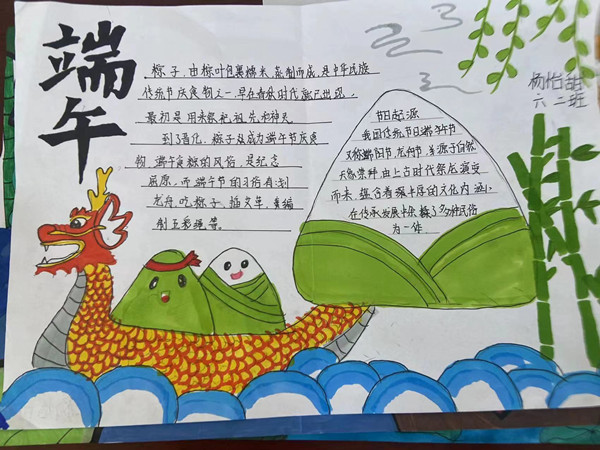 端午
粽子,由粽叶包裹糯米,蒸制而成,是中华民族
传统节庆食物之一,早在春秋时代就已出现。
最初是用来祭祀祖先和神灵
到了晋代,粽子成为端午节庆食
物,端午食粽的风俗,是纪念
屈原,而端午节的习俗有划
龙舟,吃粽子,插艾草,
制五彩绳等。
节日起源
我国传统节日端午节
又称端阳节,龙舟节,源于自然
天象崇拜,由上古时代祭龙演变
而来,蕴含着深
的文化内涵,
在传承发展中
多种民俗
为一体
杨怡甜
六二班